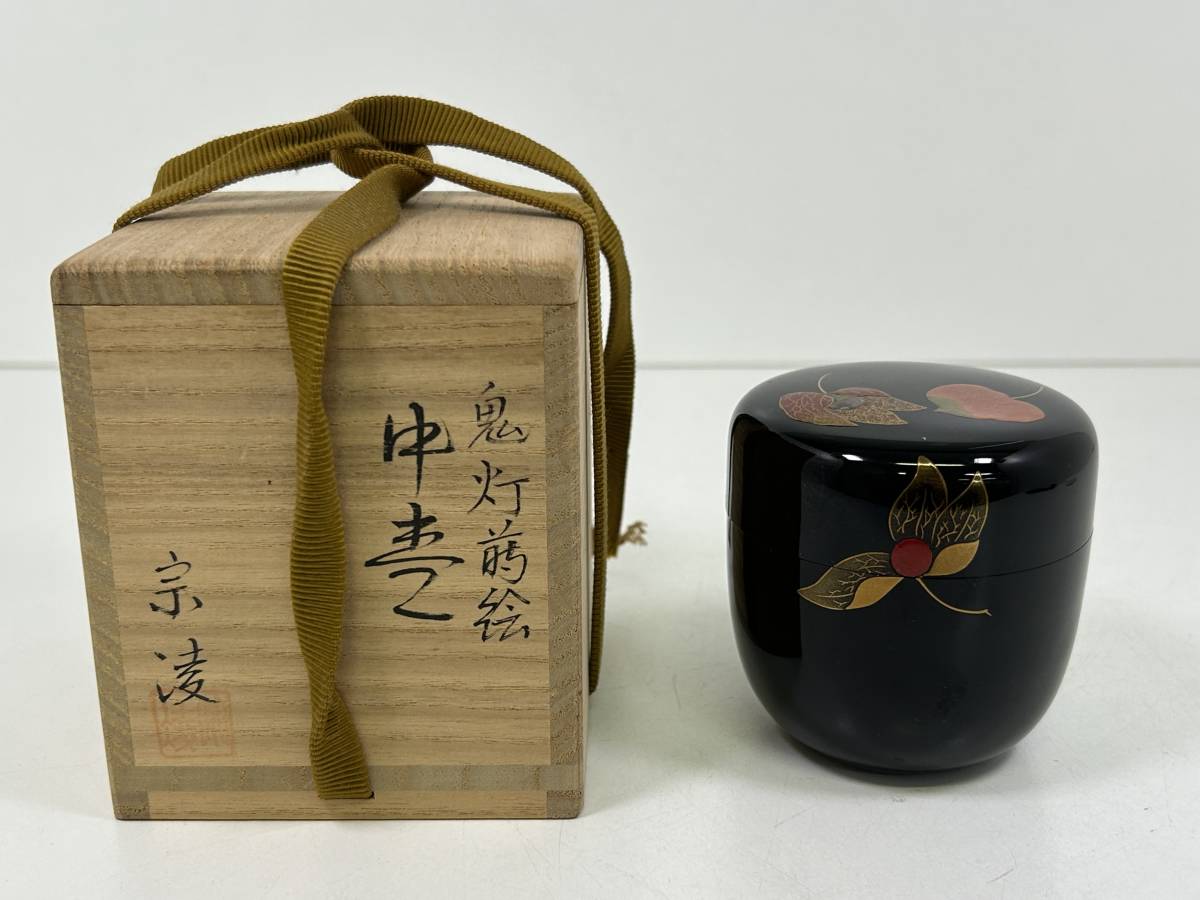 鬼灯蒔絵
中棗
宗凌